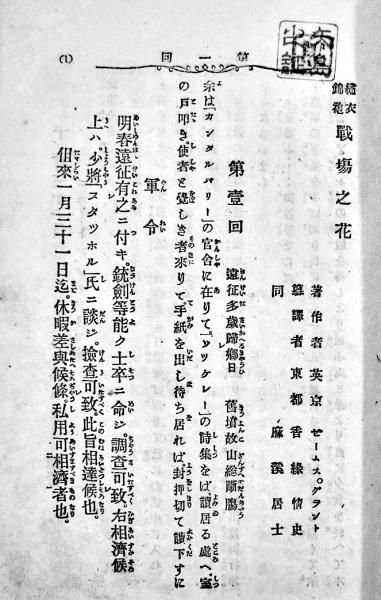 第一回
(1)
戰場之花
著作者 英京 ゼームス、グラント
譯者 東都 香縁情史
同 麻溪居士
第壹回 遠征多歳歸郷日 舊墳故山總斷膓
余は「カンタルバリー」の官舍に在りて。「ツケレー」の詩集をば讀居る處へ室
の戸叩き使者と覺しき者來りて手紙を出し待ち居れば封押切て讀下すに
軍令
明春遠征有之ニ付キ。銃劍等能ク士卒ニ命ジ。調査可致。右相濟候
上ハ。少將「スタツホル」氏ニ談ジ。撿査可致此旨相達候也。
但來一月三十一日迄。休暇差與候條。私用可相濟者也。